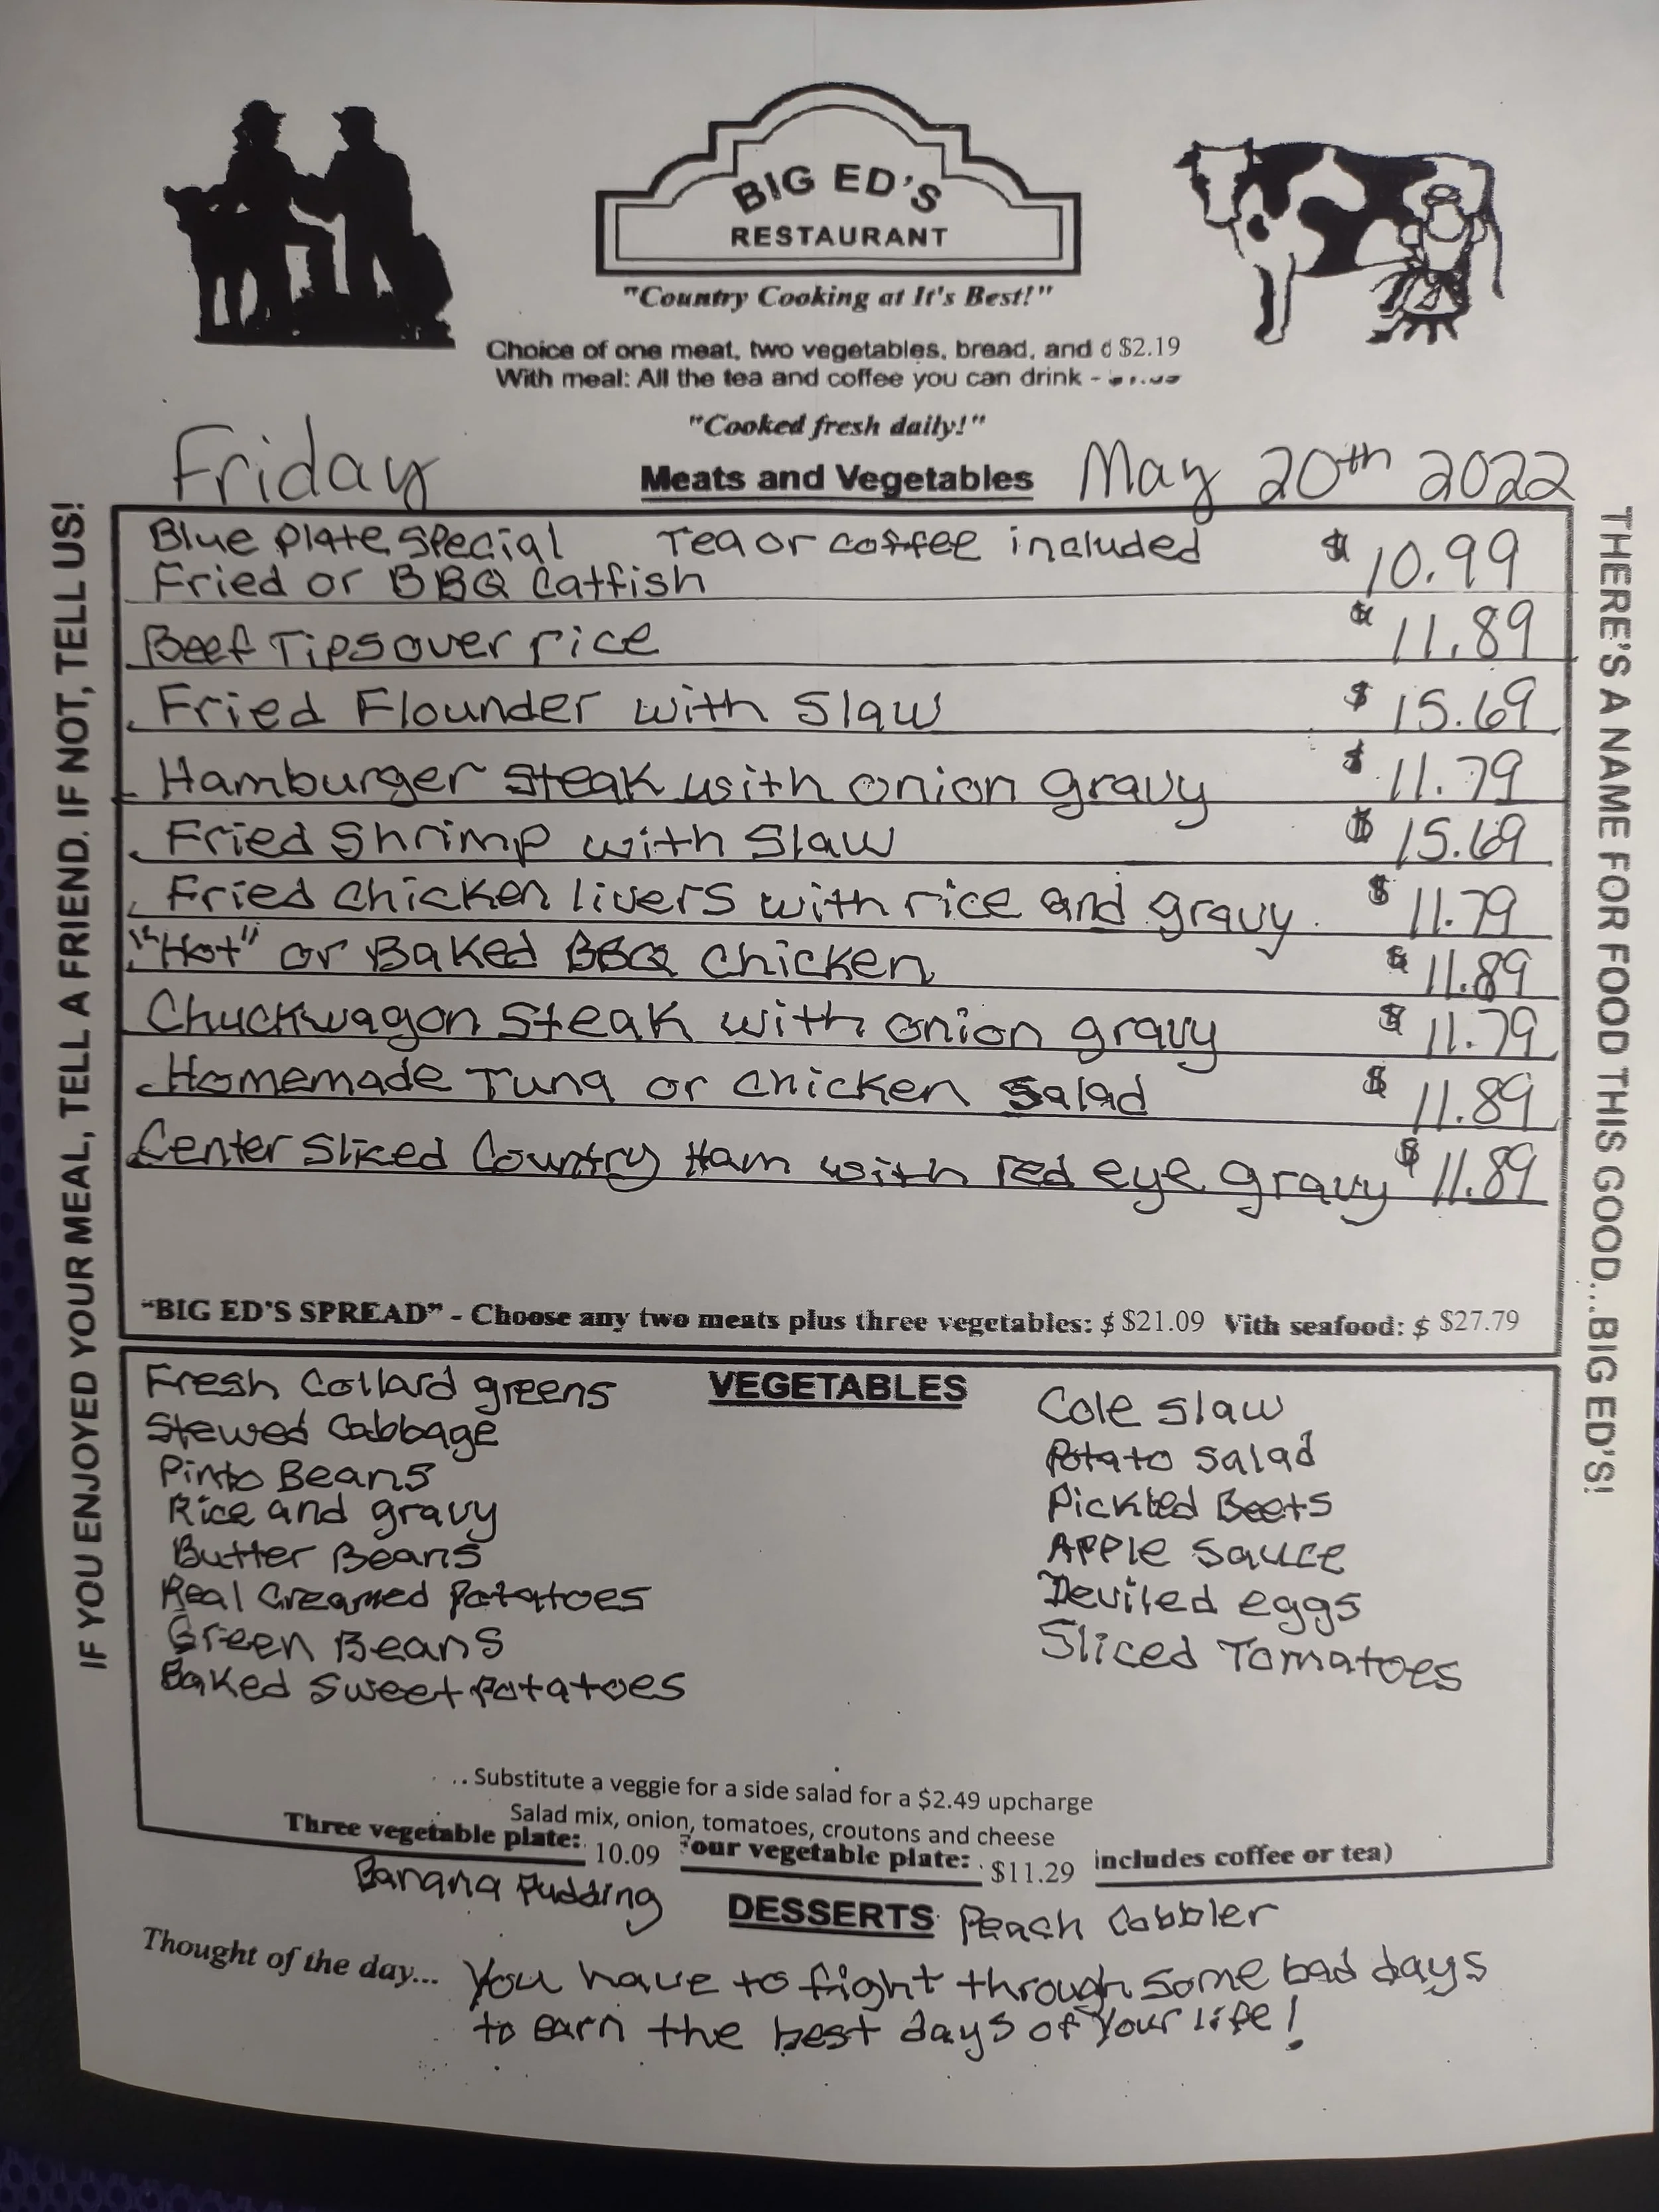 BIG ED'S
RESTAURANT
"Country Cooking at It's Best!"
Choice of one meat, two vegetables, bread, and $2.19
With meal: All the tea and coffee you can drink -
"Cooked fresh daily!"
Friday Meats and Vegetables May 20th 2022
Blue Plate Special Tea or coffee included $10.99
Fried or BBQ Catfish
Beef Tips over rice $11.89
Fried Flounder with Slaw $15.69
Hamburger Steak with onion gravy $11.79
Fried Shrimp with Slaw $15.69
Fried chicken livers with rice and gravy $11.79
"Hot" or Baked BBQ chicken $11.89
Chuckwagon Steak with onion gravy $11.79
Homemade Tuna or Chicken Salad $11.89
Center Sliced Country Ham with red eye gravy $11.89
"BIG ED'S SPREAD" - Choose any two meats plus three vegetables: $ $21.09 Vith seafood: $ $27.79
VEGETABLES
Fresh Collard greens
Stewed Cabbage
Pinto Beans
Rice and gravy
Butter Beans
Real Creamed Potatoes
Green Beans
Baked Sweet Potatoes
Cole Slaw
Potato Salad
Pickled Beets
Apple Sauce
Deviled eggs
Sliced Tomatoes
.. Substitute a veggie for a side salad for a $2.49 upcharge
Salad mix, onion, tomatoes, croutons and cheese
Three vegetable plate: 10.09 Four vegetable plate: $11.29 includes coffee or tea)
Banana Pudding DESSERTS Peach Cobbler
Thought of the day... You have to fight through some bad days
to earn the best days of your life!
IF YOU ENJOYED YOUR MEAL, TELL A FRIEND. IF NOT, TELL US!
THERE'S A NAME FOR FOOD THIS GOOD...BIG ED'S!